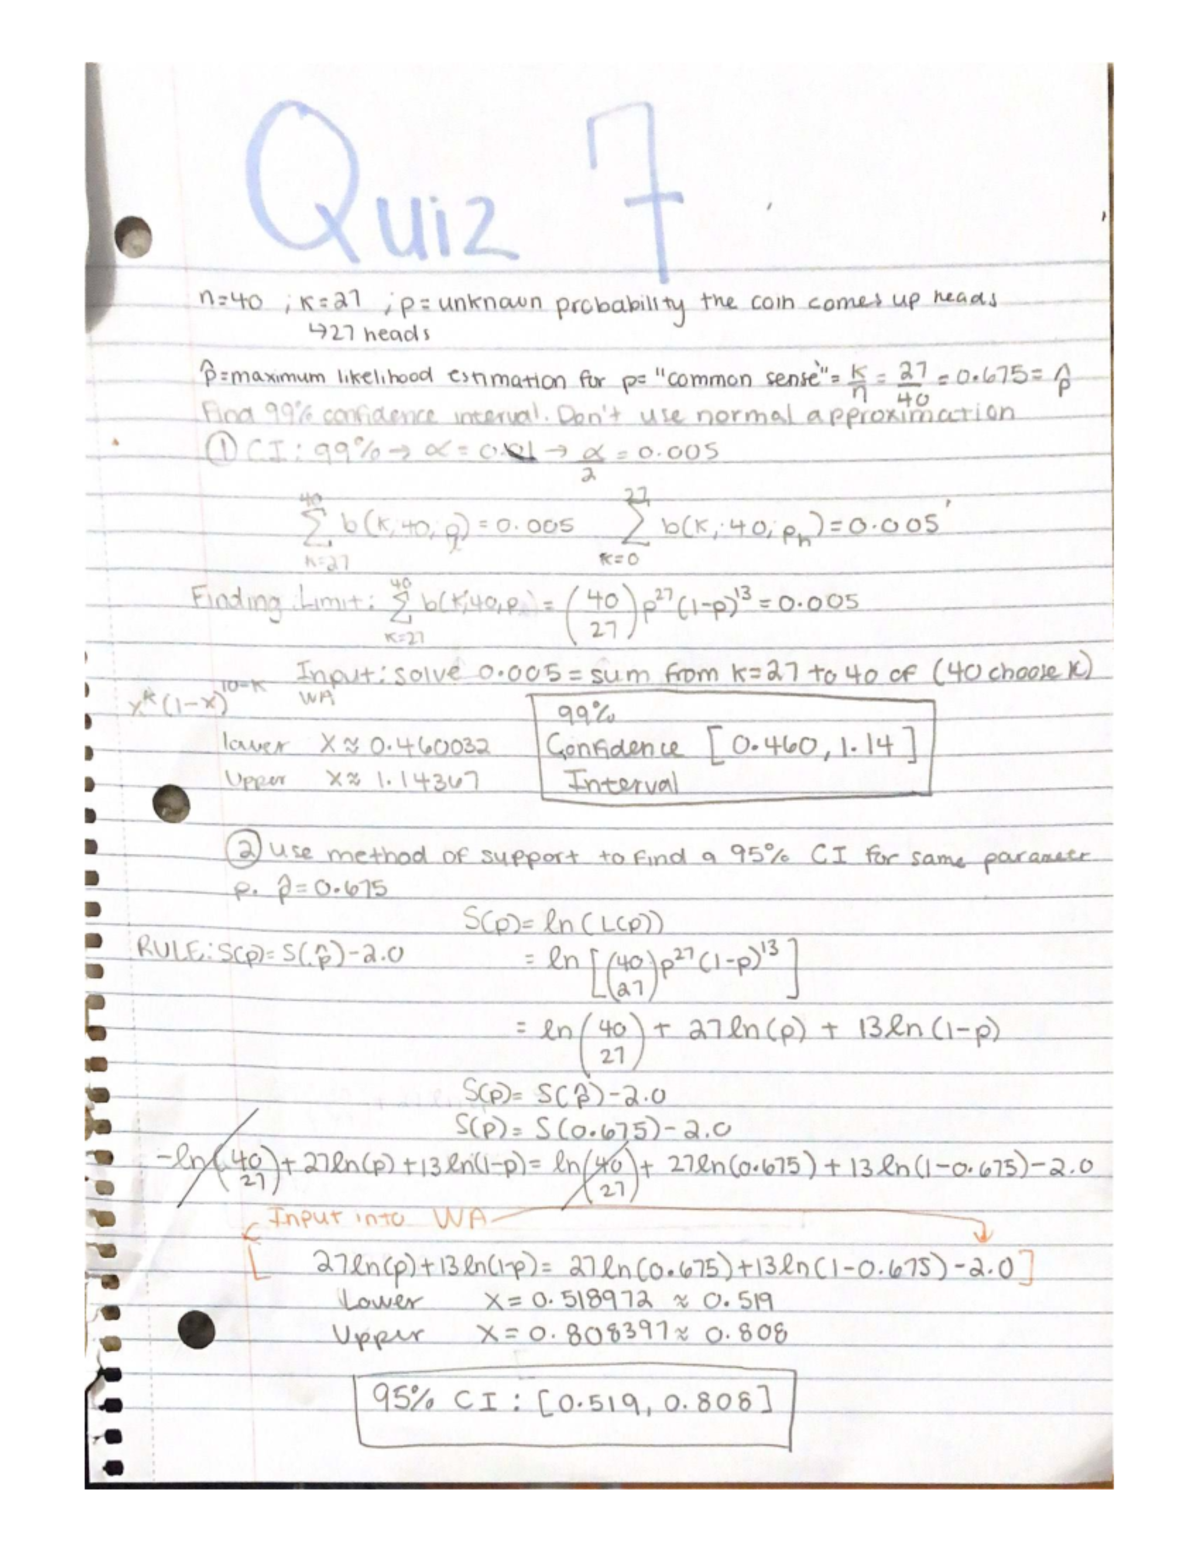 Quiz 7
n=40 ; K=27 ; p= unknown probability the coin comes up heads
↳27 heads
p̂=maximum likelihood estimation for p= "common sense"= K/n = 27/40 = 0.675= p̂
Find 99% confidence interval. Don't use normal approximation
① CI: 99% → α = 0.01 → α/2 = 0.005
∑_{K=27}^{40} b(K; 40; p) = 0.005 ∑_{K=0}^{27} b(K; 40; p_n) = 0.005
Finding Limit: ∑_{K=27}^{40} b(K;40,p) = (40 27) p^27 (1-p)^13 = 0.005
Input: solve 0.005 = sum from K=27 to 40 of (40 choose K)
WA
x^K (1-x)^10-K
lower X ≈ 0.460032
Upper X ≈ 1.14367
99%
Confidence [0.460, 1.14]
Interval
② Use method of support to find a 95% CI for same parameter
p. p̂ = 0.675
S(p)= ln(L(p))
RULE: S(p)= S(p̂)-2.0
= ln[(40 27) p^27 (1-p)^13]
= ln(40 27) + 27ln(p) + 13ln(1-p)
S(p)= S(p̂)-2.0
S(p)= S(0.675)-2.0
-ln(40 27)+ 27ln(p) +13ln(1-p)= ln(40 27)+ 27ln(0.675) + 13ln(1-0.675)-2.0
Input into WA
[ 27ln(p)+13ln(1-p)= 27ln(0.675)+13ln(1-0.675)-2.0 ]
Lower X = 0.518972 ≈ 0.519
Upper X = 0.808397 ≈ 0.808
95% CI : [0.519, 0.808]